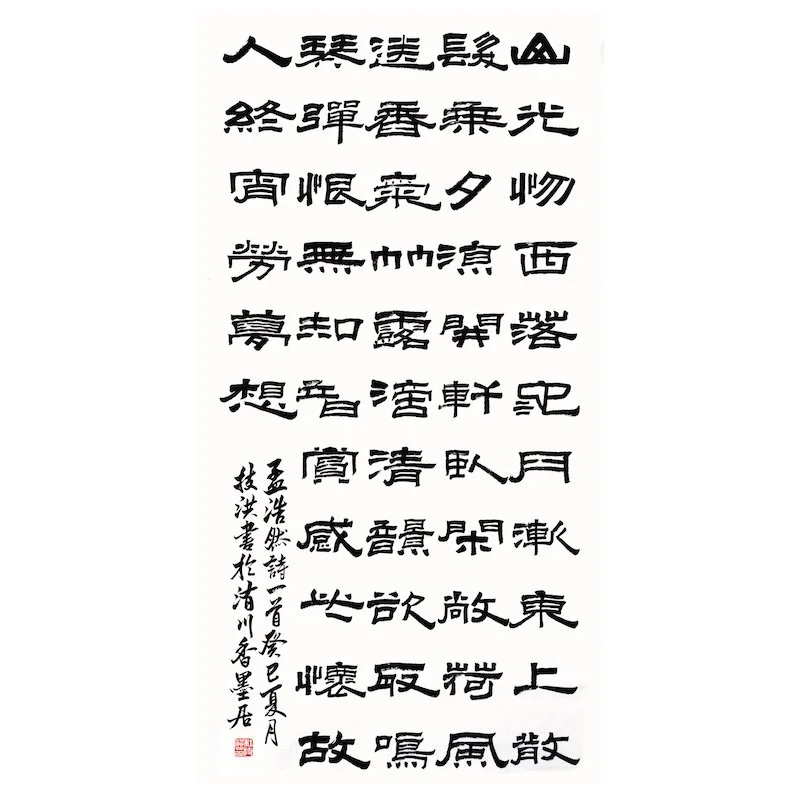 山光物西落池月漸東上散
髮乘夕涼開軒臥閑敞荷風
送香氣竹露滴清韻欲取鳴
琴彈恨無知音賞感此懷故
人終宵勞夢想
孟浩然詩一首癸巳夏月
技洪書於清川香墨居